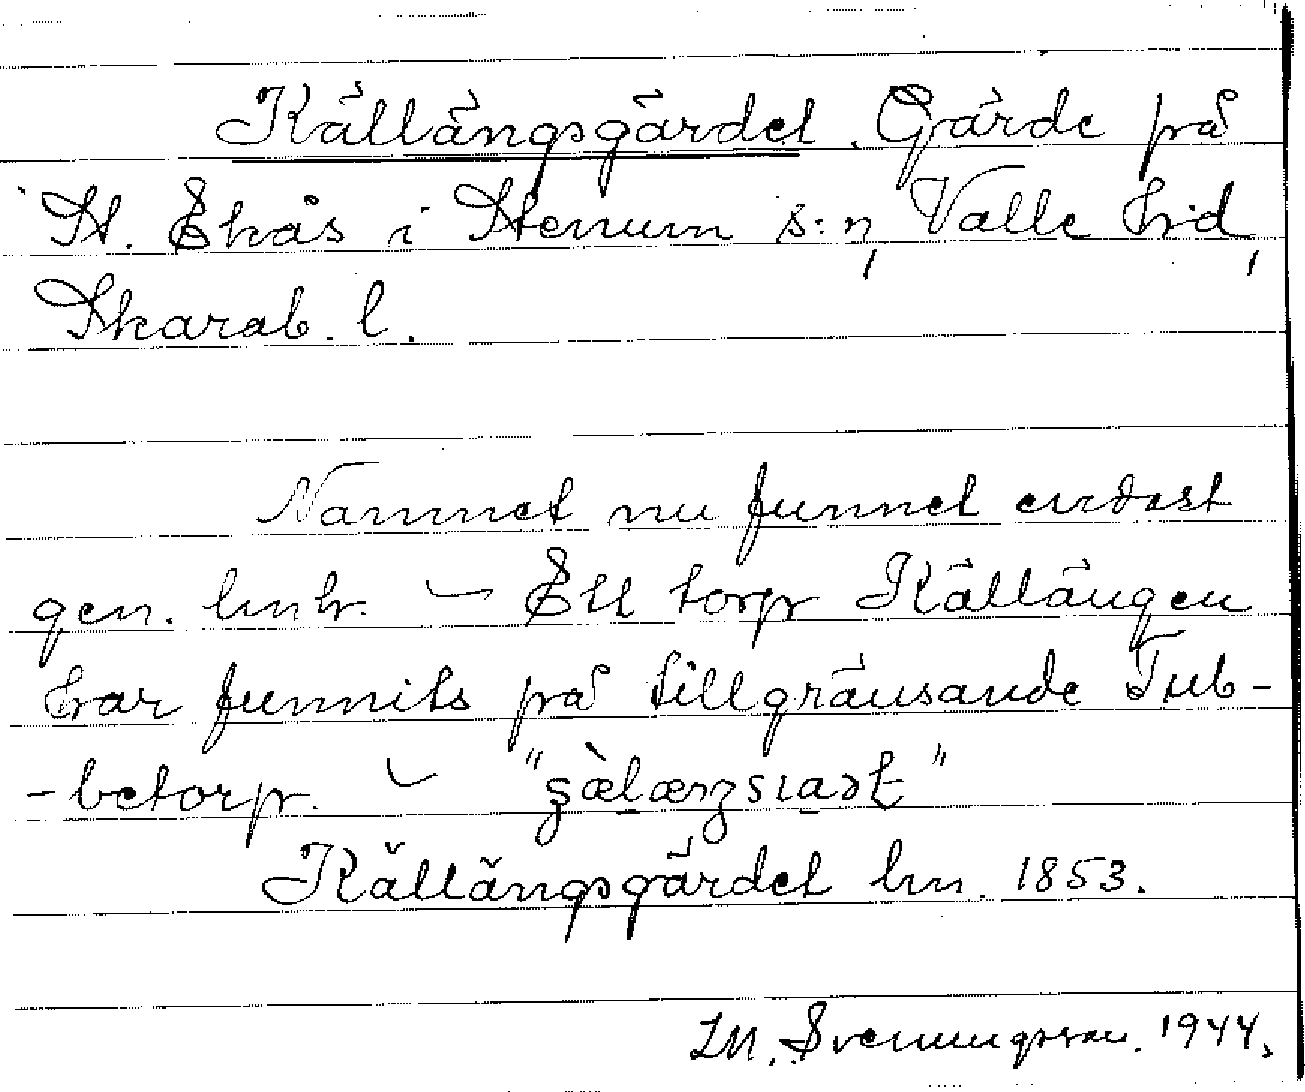 Källängsgärdet. Gärde på
St. Ekås i Stenum s:n, Valle hd,
Skarab. l.
Namnet nu funnet endast
gen. lmh. – Ett torp Källängen
har funnits på tillgränsande Tub-
-betorp. –
Källängsgärdet lm. 1853.
M. Svenungsson. 1944.